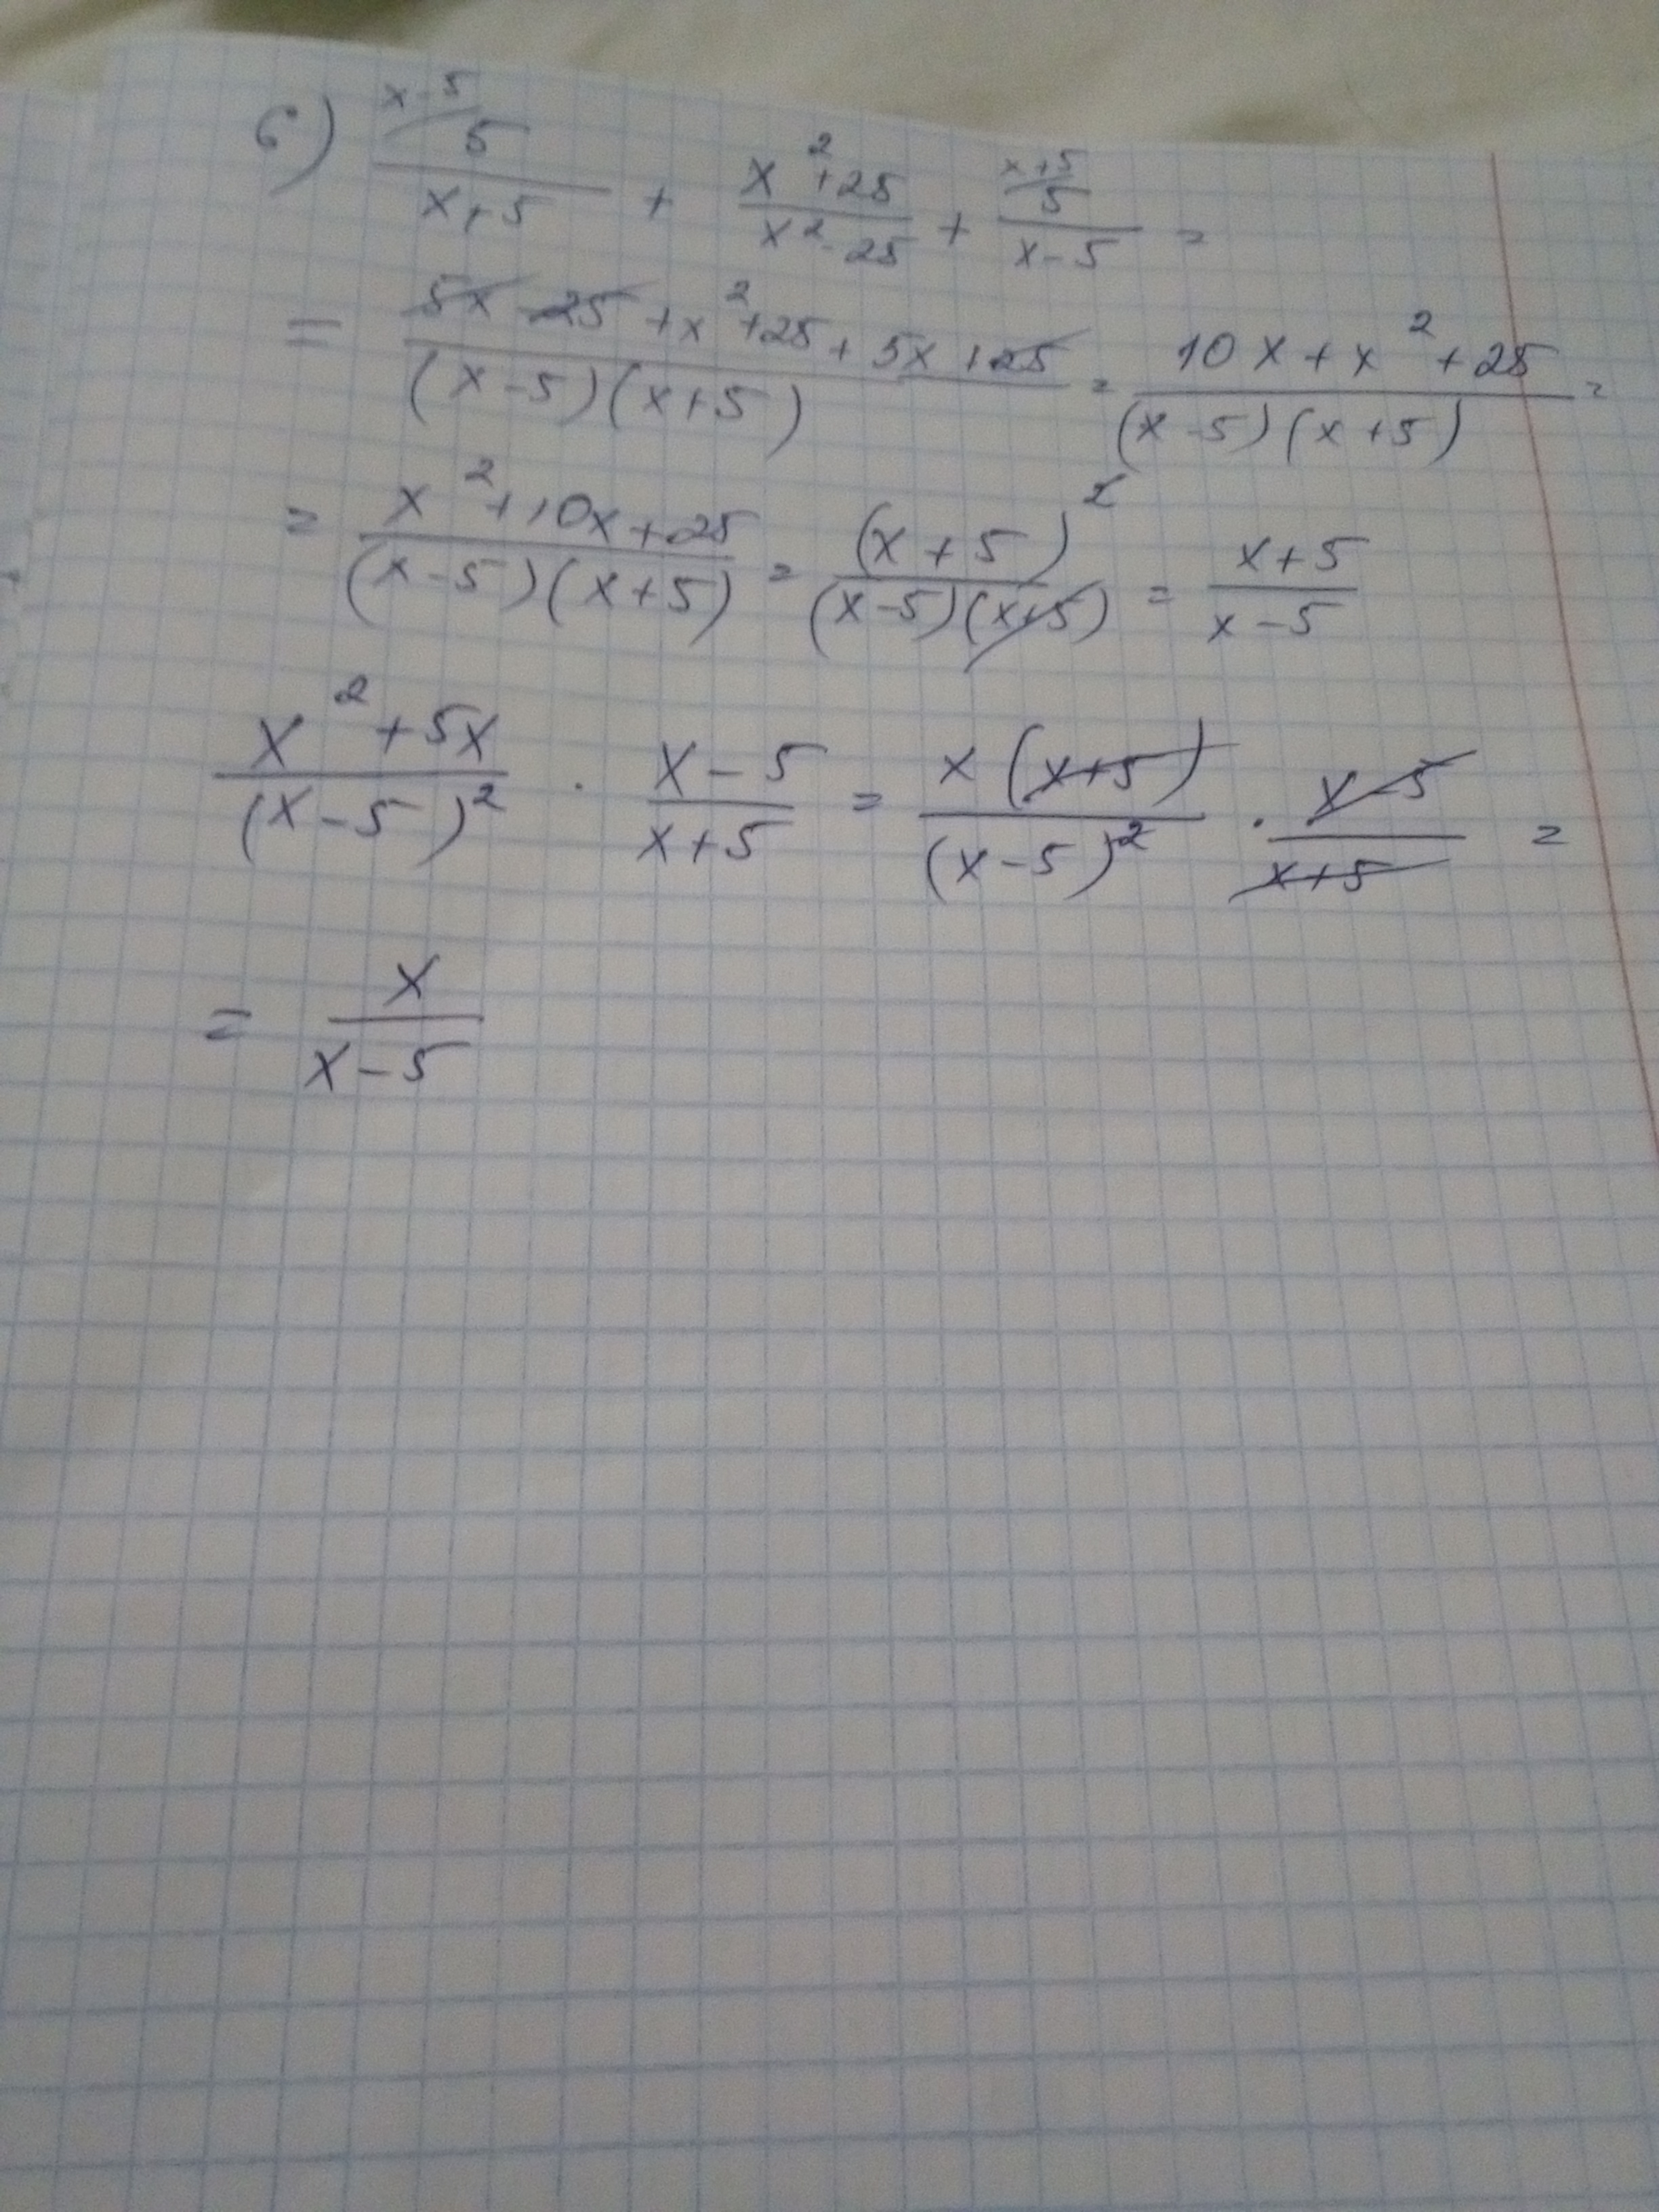 6) (x-5/ 5)/(x+5) + (x²+25)/(x²-25) + (x+5/ 5)/(x-5) =
= (5x-25+x²+25+5x+25)/((x-5)(x+5)) = (10x+x²+25)/((x-5)(x+5)) =
= (x²+10x+25)/((x-5)(x+5)) = (x+5)²/((x-5)(x+5)) = (x+5)/(x-5)
(x²+5x)/(x-5)² · (x-5)/(x+5) = x(x+5)/(x-5)² · (x-5)/(x+5) =
= x/(x-5)